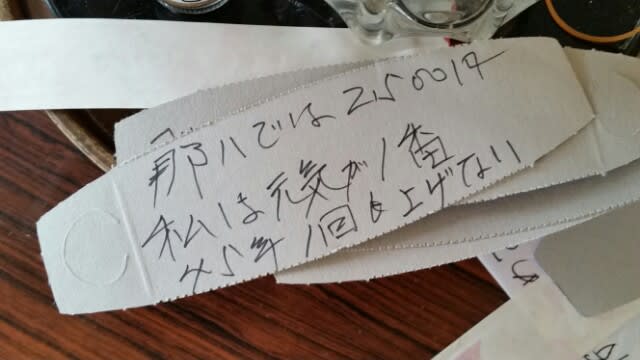 那八では250017
私は元気が1番
45年1回も上げない